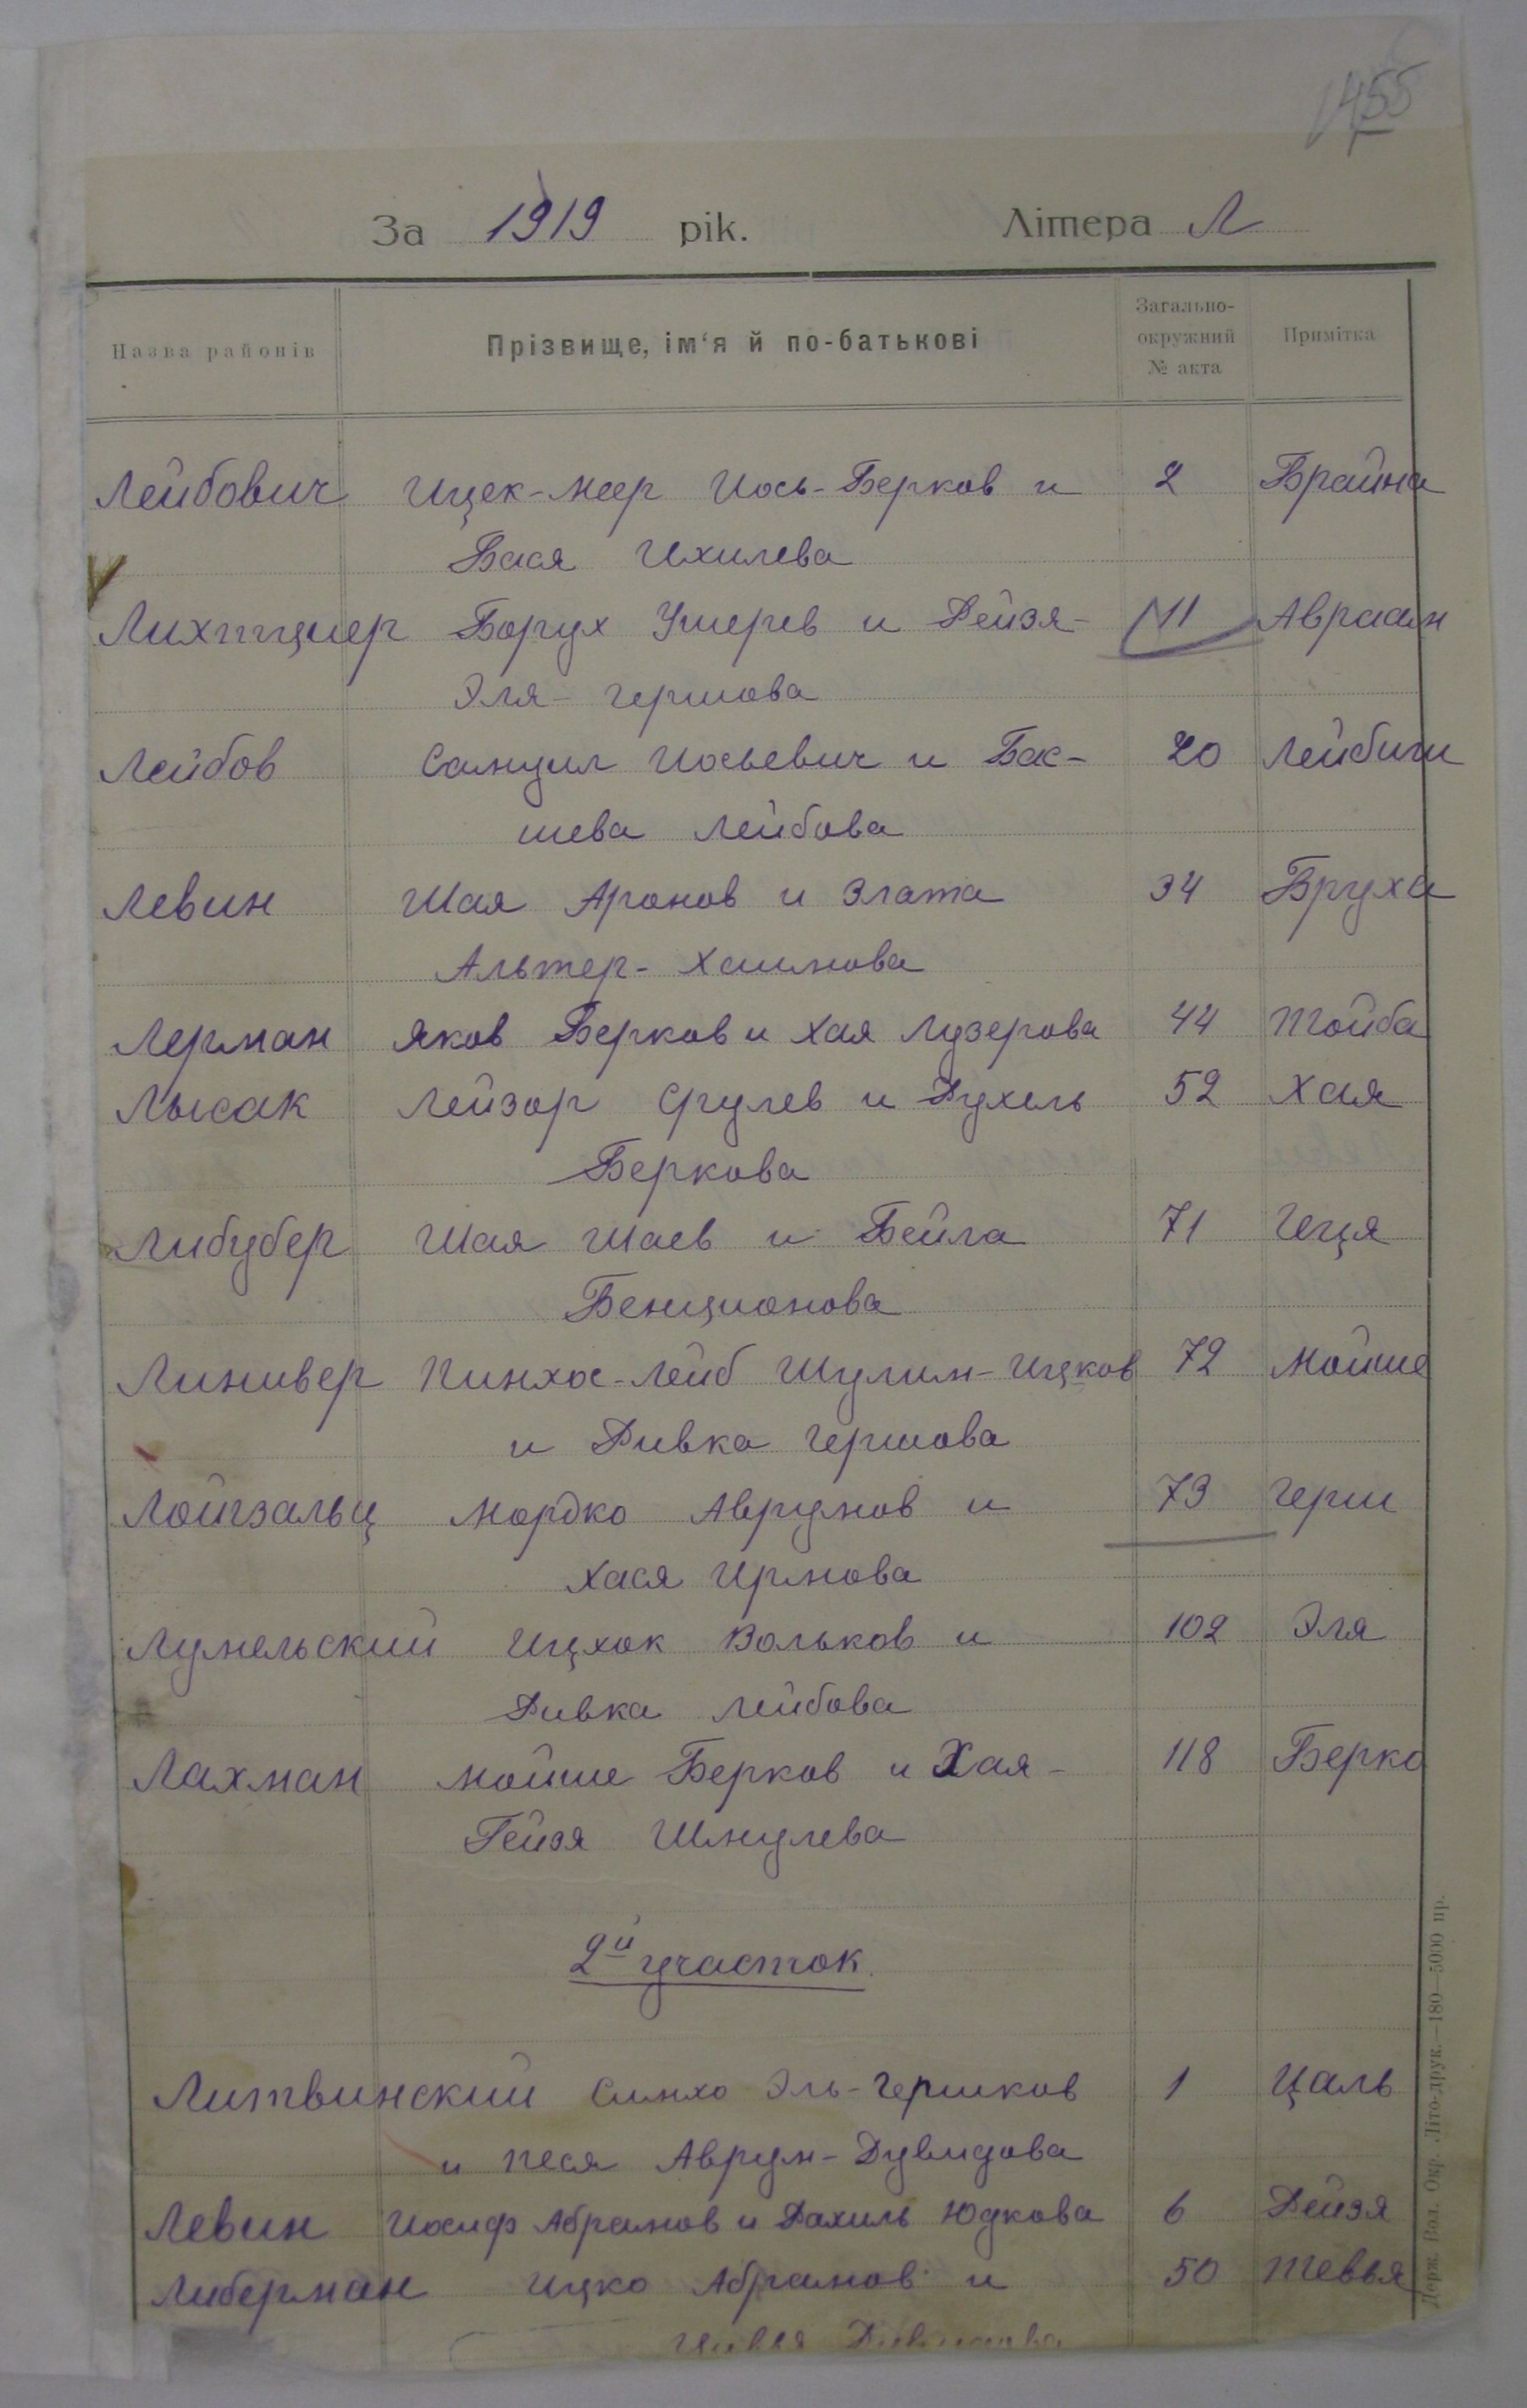 455
За 1919 рік. Літера Л
Назва районів Прізвище, ім'я й по-батькові Загально-окружний № акта Примітка
Лейбович Ицек-Меер Иось-Берков и 2 Брайна
Бася Ихилева
Лихтциер Борух Ушерев и Рейзя- 11 Авраам
Эля-Гершова
Лейбов Самуил Иосьевич и Бас- 20 Лейбиш
шева Лейбова
Левин Шая Аронов и Злата 34 Бруха
Альтер-Хаимова
Лерман Яков Берков и Хая Лузерова 44 Тойба
Лысак Лейзор Срулев и Рухель 52 Хая
Беркова
Либубер Шая Шаев и Бейла 71 Иця
Бенционова
Линивер Пинхос-Лейб Шулим-Ицков 72 Мойше
и Ривка Гершова
Лойгзальц Мордко Аврумов и 73 Герш
Хася Ирмова
Лумельский Ицхок Вольков и 102 Эля
Ривка Лейбова
Лахман Мойше Берков и Хая- 118 Берко
Гейзя Шмулева
2й участок.
Литвинский Симхо Эль-Гершков 1 Цаль
и Песя Аврум-Дувидова
Левин Иосиф Абрамов и Рахиль Юдкова 6 Рейзя
Либерман Ицко Абрамов и 50 Тевья
Цивья
Держ. Вол. Окр. Літо-друк.—180—5000 пр.